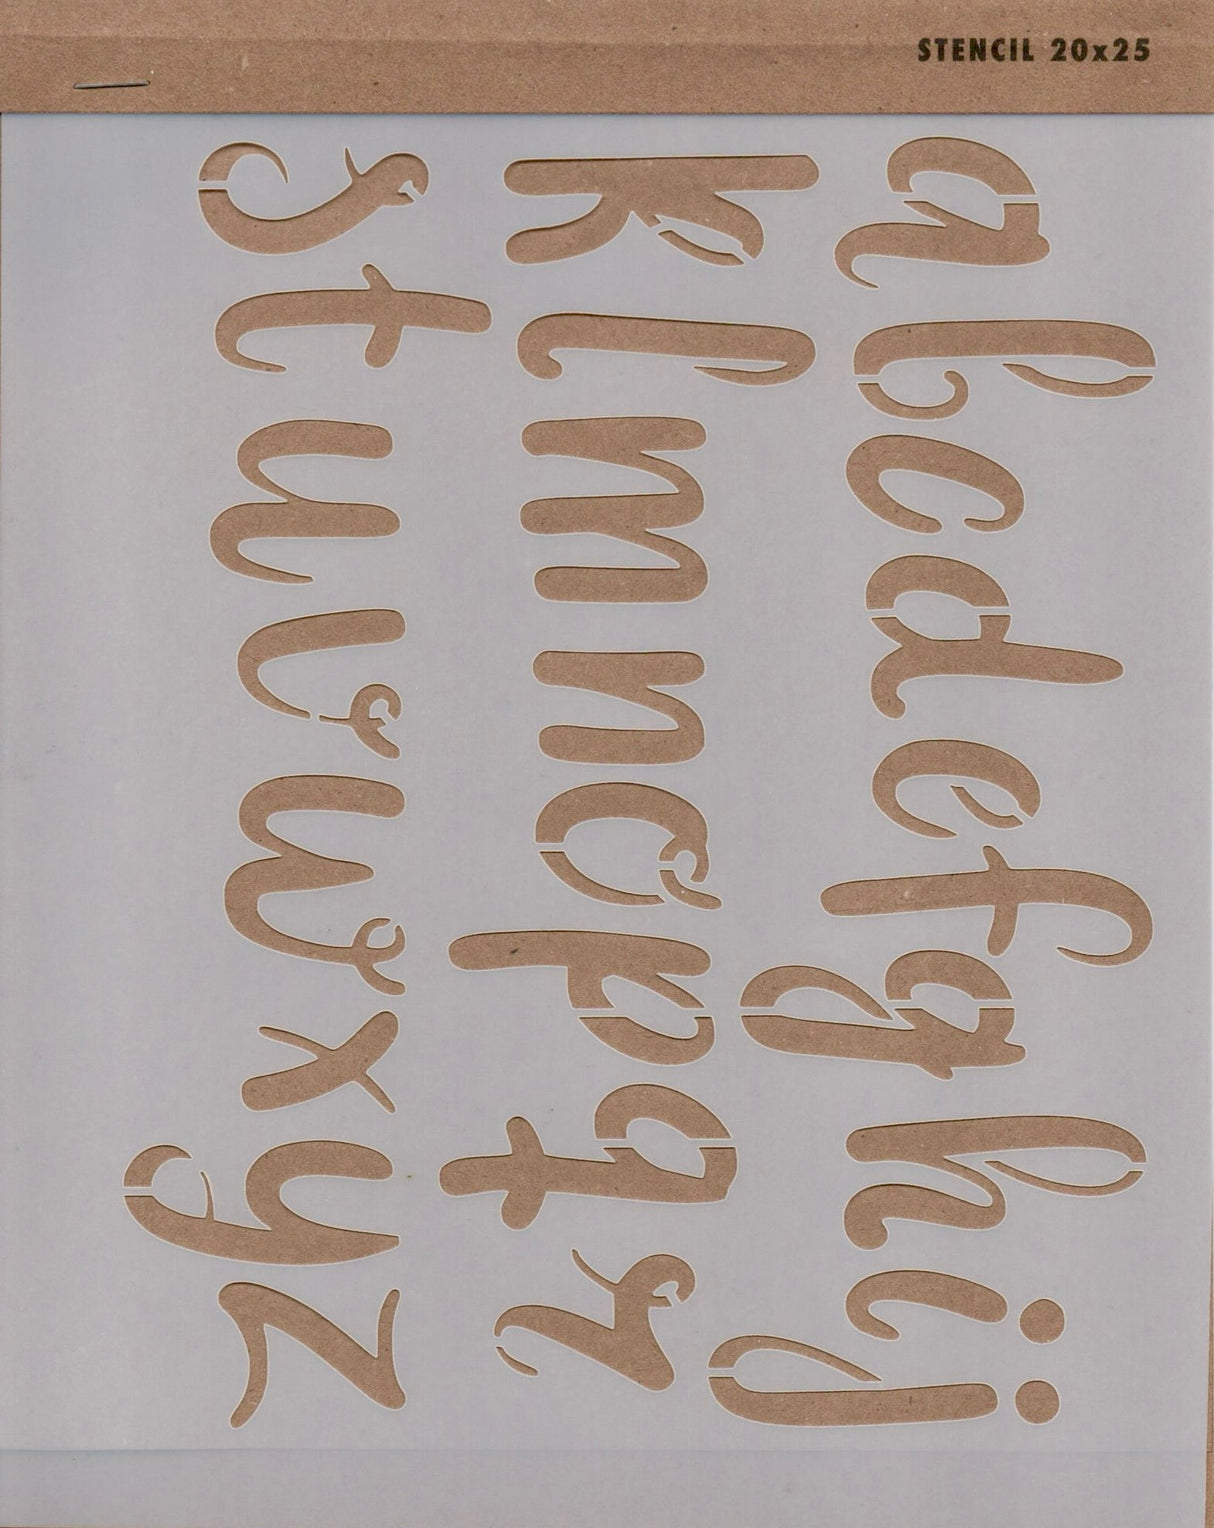 STENCIL 20x25
abcdefghij
klmnopqr
stuvwxyz